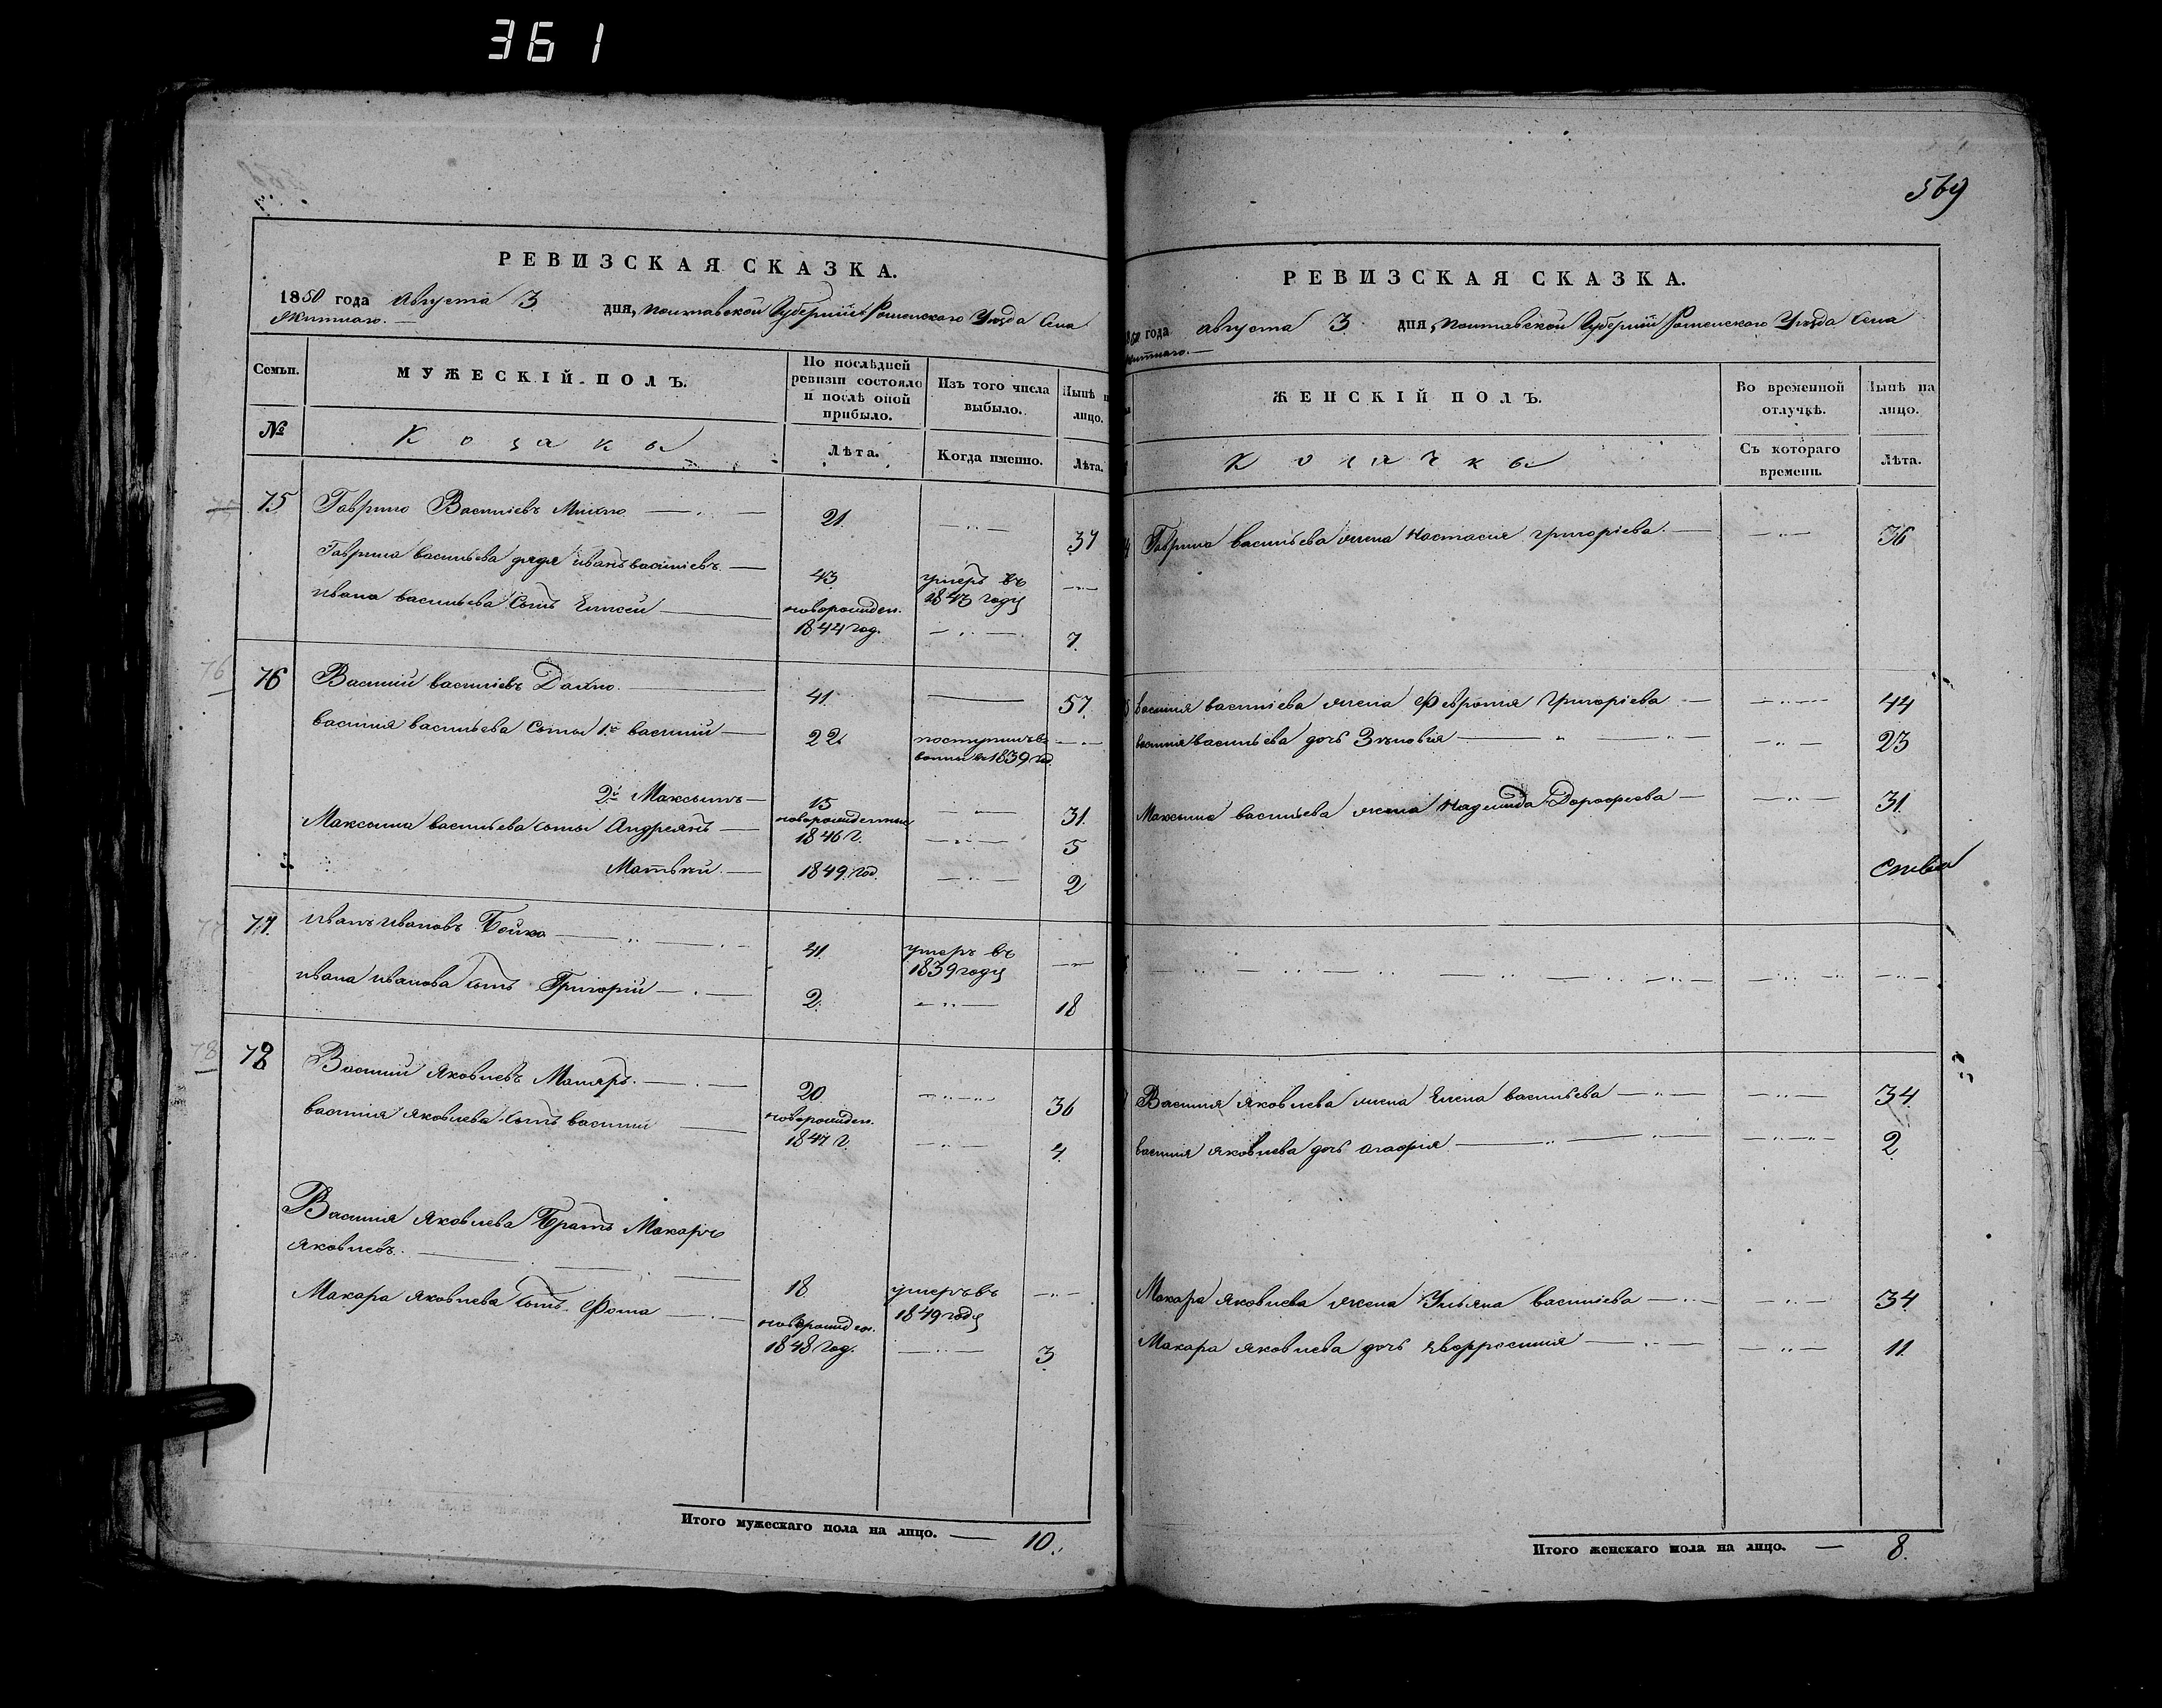 361
РЕВИЗСКАЯ СКАЗКА.
1850 года Августа 3 дня, Полтавской Губерніи Роменскаго Уѣзда Села
МУЖЕСКІЙ ПОЛЪ.
Семьи.
По послѣдней ревизіи состояло и послѣ оной прибыло.
Изъ того числа выбыло.
Нынѣ на лицо.
№
Козаки
Лѣта.
Когда именно.
Лѣта.
75 Гаврило Васильевъ Михно 21 37
Гаврила васильева дядя иванъ васильевъ 43 умеръ въ 1843 году
ивана васильева сынъ Елисей новорожден. 1844 год. 7
76 Василий васильевъ Дахно 41 57
василия васильева сыны 1й василий 22 поступилъ в 1839 год.
2й Максимъ 15 31
Максима васильева сыны Андреянъ новорожденные 1846 г. 5
Матвей 1849 год. 2
77 иванъ ивановъ Бойко 41 умеръ въ 1839 году
ивана иванова сынъ Григорій 2 18
78 Василий Яковлевъ 20 36
василия яковлева сынъ василий новорожден. 1847 г. 4
Василия Яковлева Братъ Макаръ
яковлевъ 18 умеръ въ 1849 году
Макара яковлева сынъ Фома новорожден. 1848 год. 3
Итого мужескаго пола на лицо. 10.
569
РЕВИЗСКАЯ СКАЗКА.
года Августа 3 дня, Полтавской Губерніи Роменскаго Уѣзда Села
ЖЕНСКІЙ ПОЛЪ.
Во временной отлучкѣ.
Нынѣ на лицо.
Козачки
Съ котораго времени.
Лѣта.
Гаврила васильева жена Настасия григоріева 36
василия васильева жена Феврония Григоріева 44
василия васильева дочь Зѣновия 23
Максима васильева жена Надежда Дорофеева 31
Василия яковлева жена Елена васильева 34
василия яковлева дочь агафия 2
Макара яковлева жена Ульяна васильева 34
Макара яковлева дочь Евфросиния 11
Итого женскаго пола на лицо. 8.